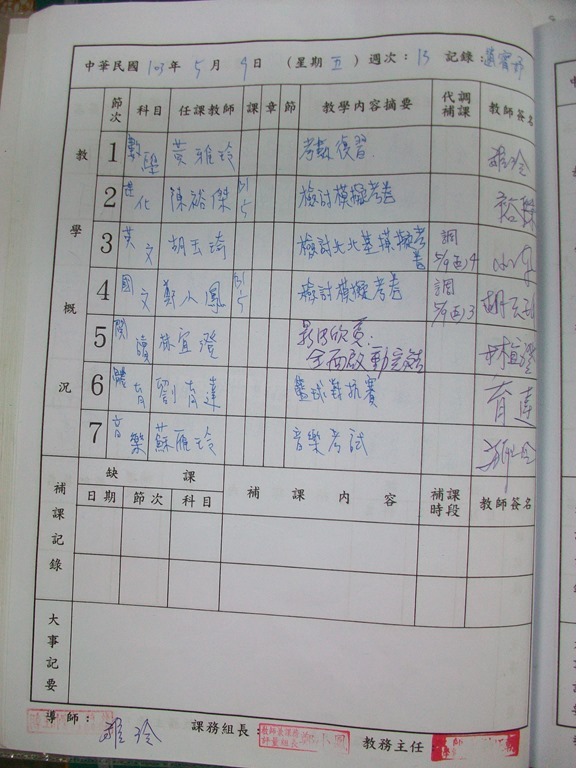 中華民國 103 年 5 月 9 日 (星期 五) 週次: 13 記錄:
教學概況
節次 科目 任課教師 課 章 節 教學內容摘要 代調補課 教師簽名
1 數學 黃雅玲 考卷復習. 雅玲
2 理化 陳裕傑 檢討模擬考卷 裕傑
3 英文 胡玉琦 檢討大北基模擬考卷 調 5/9(五)4
4 國文 鄭小鳳 檢討模擬考卷 調 5/9(五)3
5 閱讀 林宜澄 林宜澄
6 體育 劉育達 籃球對抗賽 育達
7 音樂 蘇雁玲 音樂考試
補課記錄
缺課 補課內容 補課時段 教師簽名
日期 節次 科目
大事記要
導師: 雅玲 課務組長: 教務主任